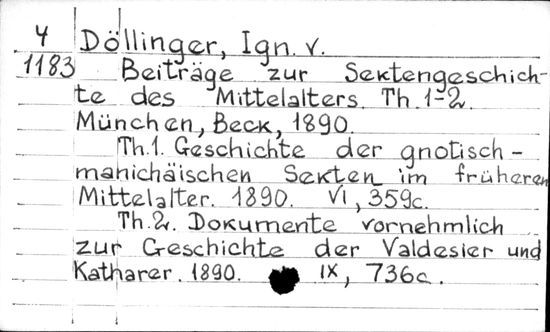 4 Döllinger, Ign. v.
1183 Beiträge zur Sektengeschich-
te des Mittelalters. Th. 1-2.
München, Beck, 1890.
Th.1. Geschichte der gnotisch-
manichäischen Sekten im früheren
Mittelalter. 1890. VI, 359c.
Th.2. Dokumente vornehmlich
zur Geschichte der Valdesier und
Katharer. 1890. IX, 736c.